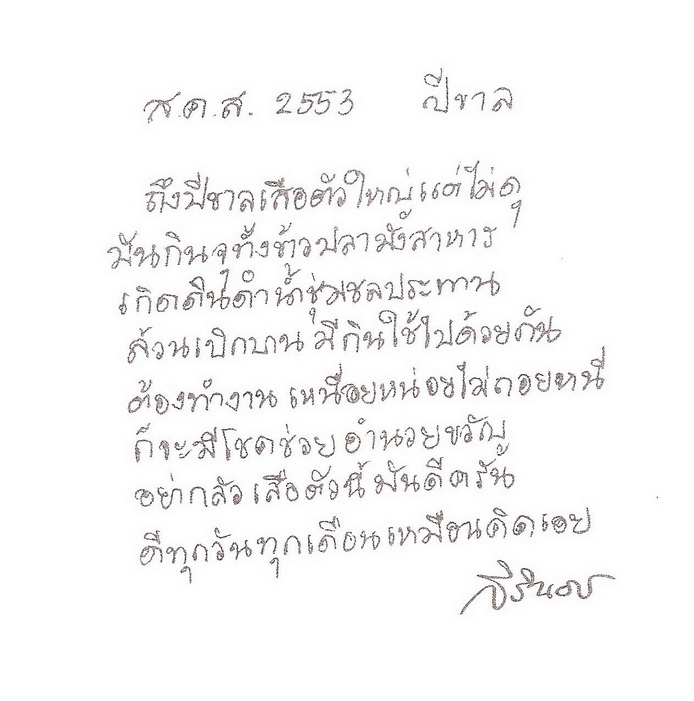 ส.ค.ส. 2553 ปีขาล
ถึงปีขาลเสือตัวใหญ่แต่ไม่ดุ
มันกินจุทั้งข้าวปลามังสาหาร
เกิดดินดำน้ำชุ่มชลประทาน
ล้วนเบิกบาน มีกินใช้ไปด้วยกัน
ต้องทำงาน เหนื่อยหน่อยไม่ถอยหนี
ก็จะมีโชคช่วย อำนวยขวัญ
อย่ากลัว เสือตัวนี้ มันดีครัน
ดีทุกวันทุกเดือนเหมือนคิดเอย
สิรินธร